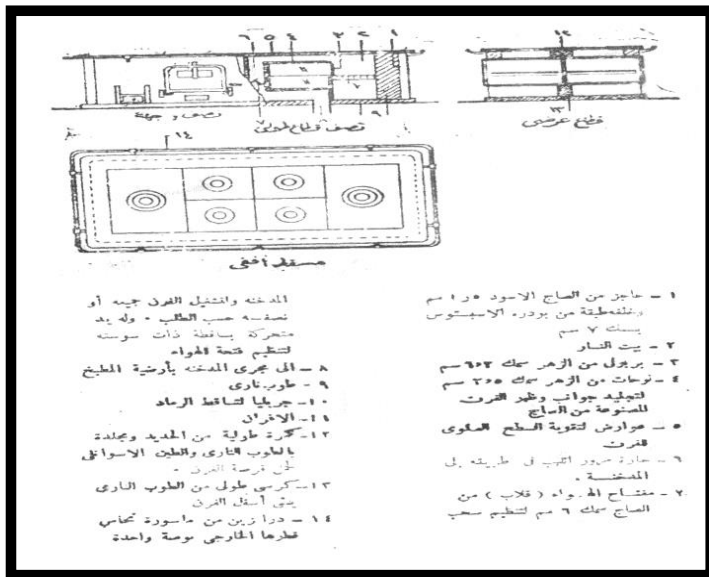 ٦ ٥ ٤ ٣ ٢ ١
١٢
٩
١٣
نصف واجهة
نصف قطاع طولى
قطاع عرضى
١٤
مسقط أفقى
١ – حاجز من الصاج الاسود ١٫٥ سم
وخلفه طبقة من بودرة الاسبستوس
بسمك ٧ سم
٢ – بيت النار
٣ – من الزهر سمك سم
٤ – لوحات من الزهر سمك سم
لتجليد جوانب وظهر الفرن
المصنوعة من الصاج
٥ – عوارض لتقوية السطح العلوى
للفرن
٦ – مرور اللهب فى طريقه إلى
المدخنة .
٧ – مفتاح الهواء ( قلاب ) من
الصاج سمك ٦ مم لتنظيم سحب
المدخنه وتشغيل الفرن جميعه أو
نصفه حسب الطلب . وله يد
متحركة ذات سوسته
لتنظيم فتحة الهواء
٨ – الى مجرى المدخنه بأرضية المطبخ
٩ – طوب نارى
١٠ – لتساقط الرماد
١١ – الافران
١٢ – كمرة طولية من الحديد ومجلدة
بالطوب النارى والطين الاسوانلى
قرصة الفرن .
١٣ – كرسى طولى من الطوب النارى
أسفل الفرن
١٤ – درابزين من ماسورة نحاس
قطرها الخارجى بوصة واحدة